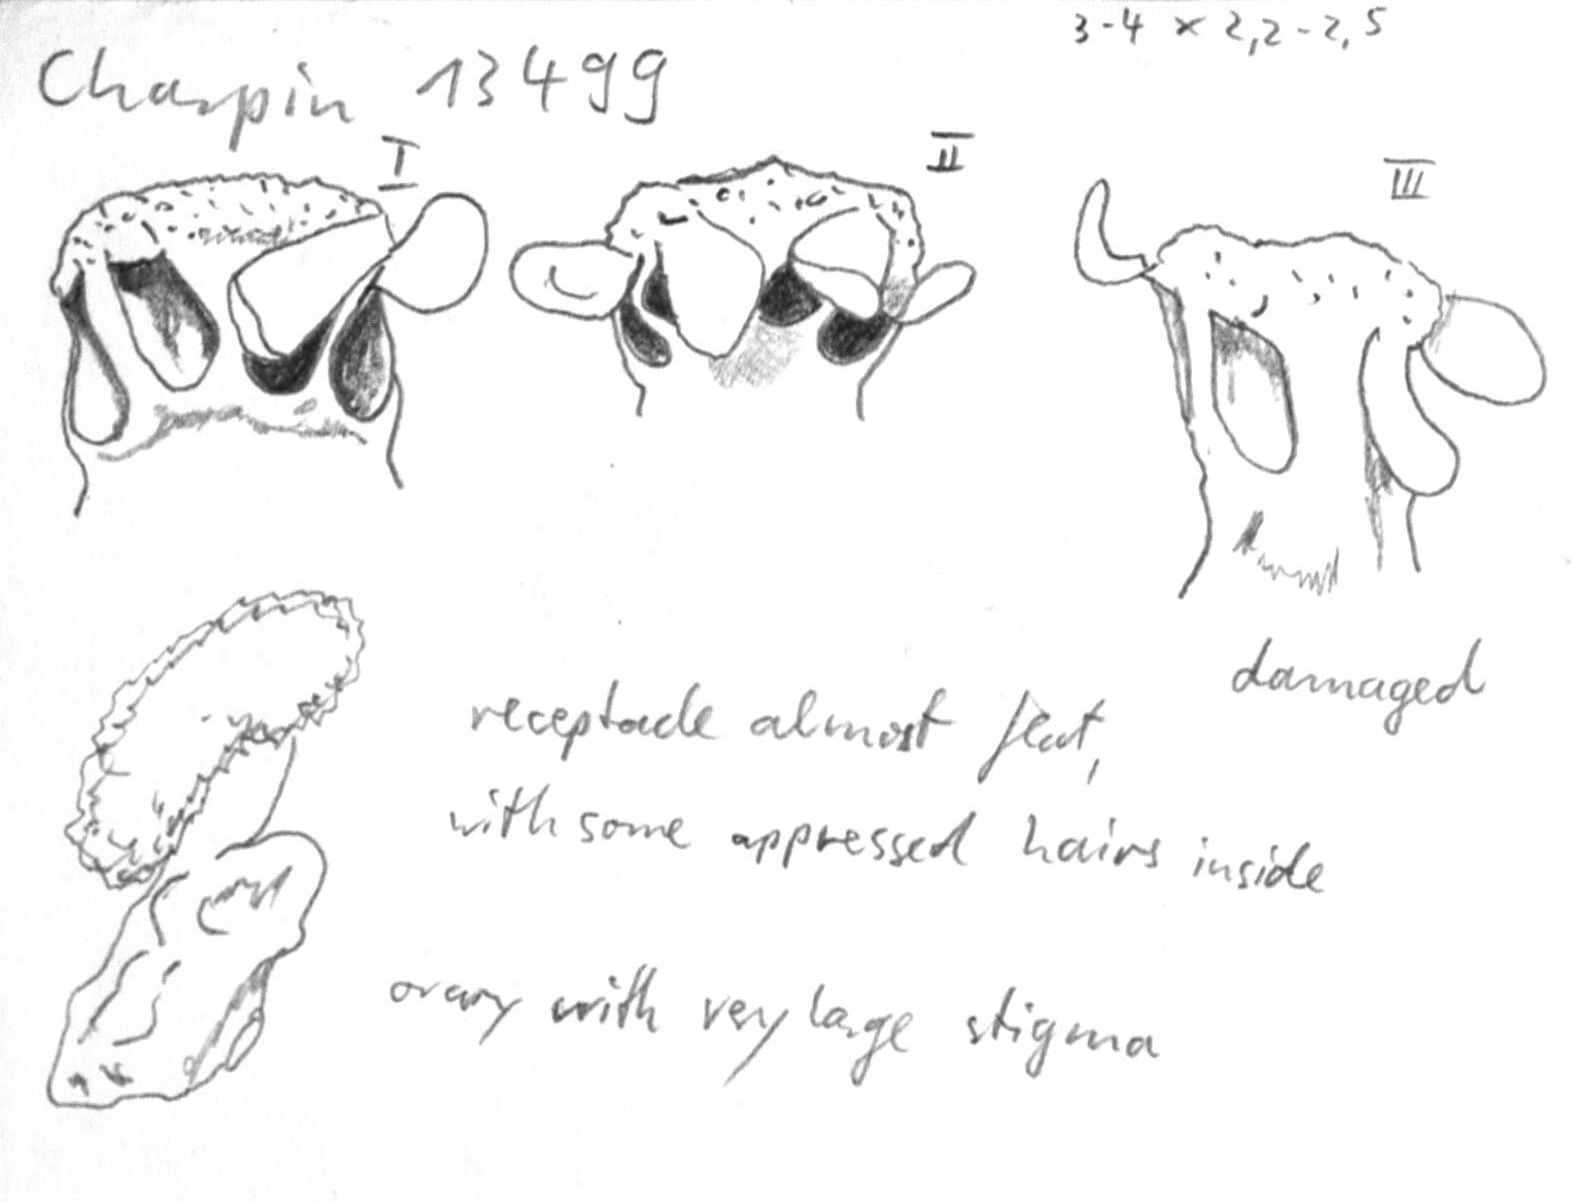 3-4 x 2,2-2,5
Charpin 13499
I
II
III
damaged
receptacle almost flat,
with some appressed hairs inside
ovary with very large stigma